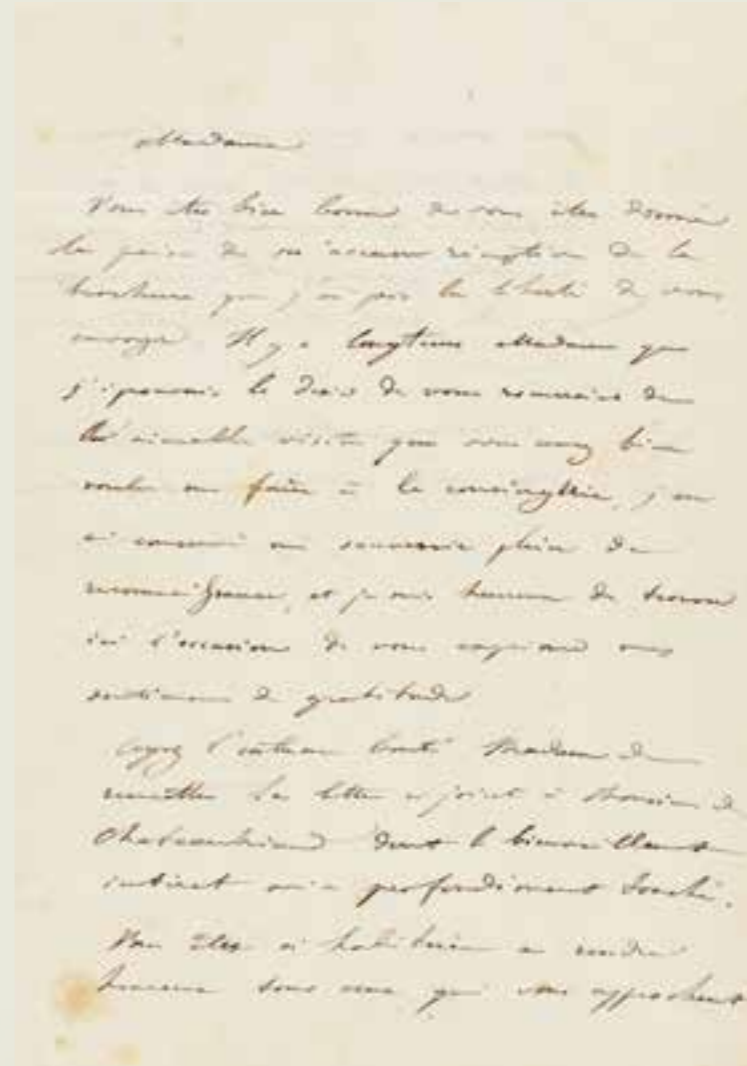 Madame
Vous êtes bien bonne de vous être donné
la peine de m'accuser réception de la
brochure que j'ai pris la liberté de vous
envoyer. Il y a longtems Madame que
j'éprouvais le désir de vous remercier de
l'aimable visite que vous avez bien
voulu me faire à la conciergerie, j'en
ai conservé un souvenir plein de
reconnaissance, et je suis heureux de trouver
ici l'occasion de vous exprimer mes
sentimens de gratitude
Ayez l'extrême bonté Madame de
remettre la lettre ci jointe à Monsieur de
Chateaubriand dont le bienveillant
intérêt m'a profondément touché.
Vous êtes si habituée à rendre
heureux tous ceux qui vous approchent